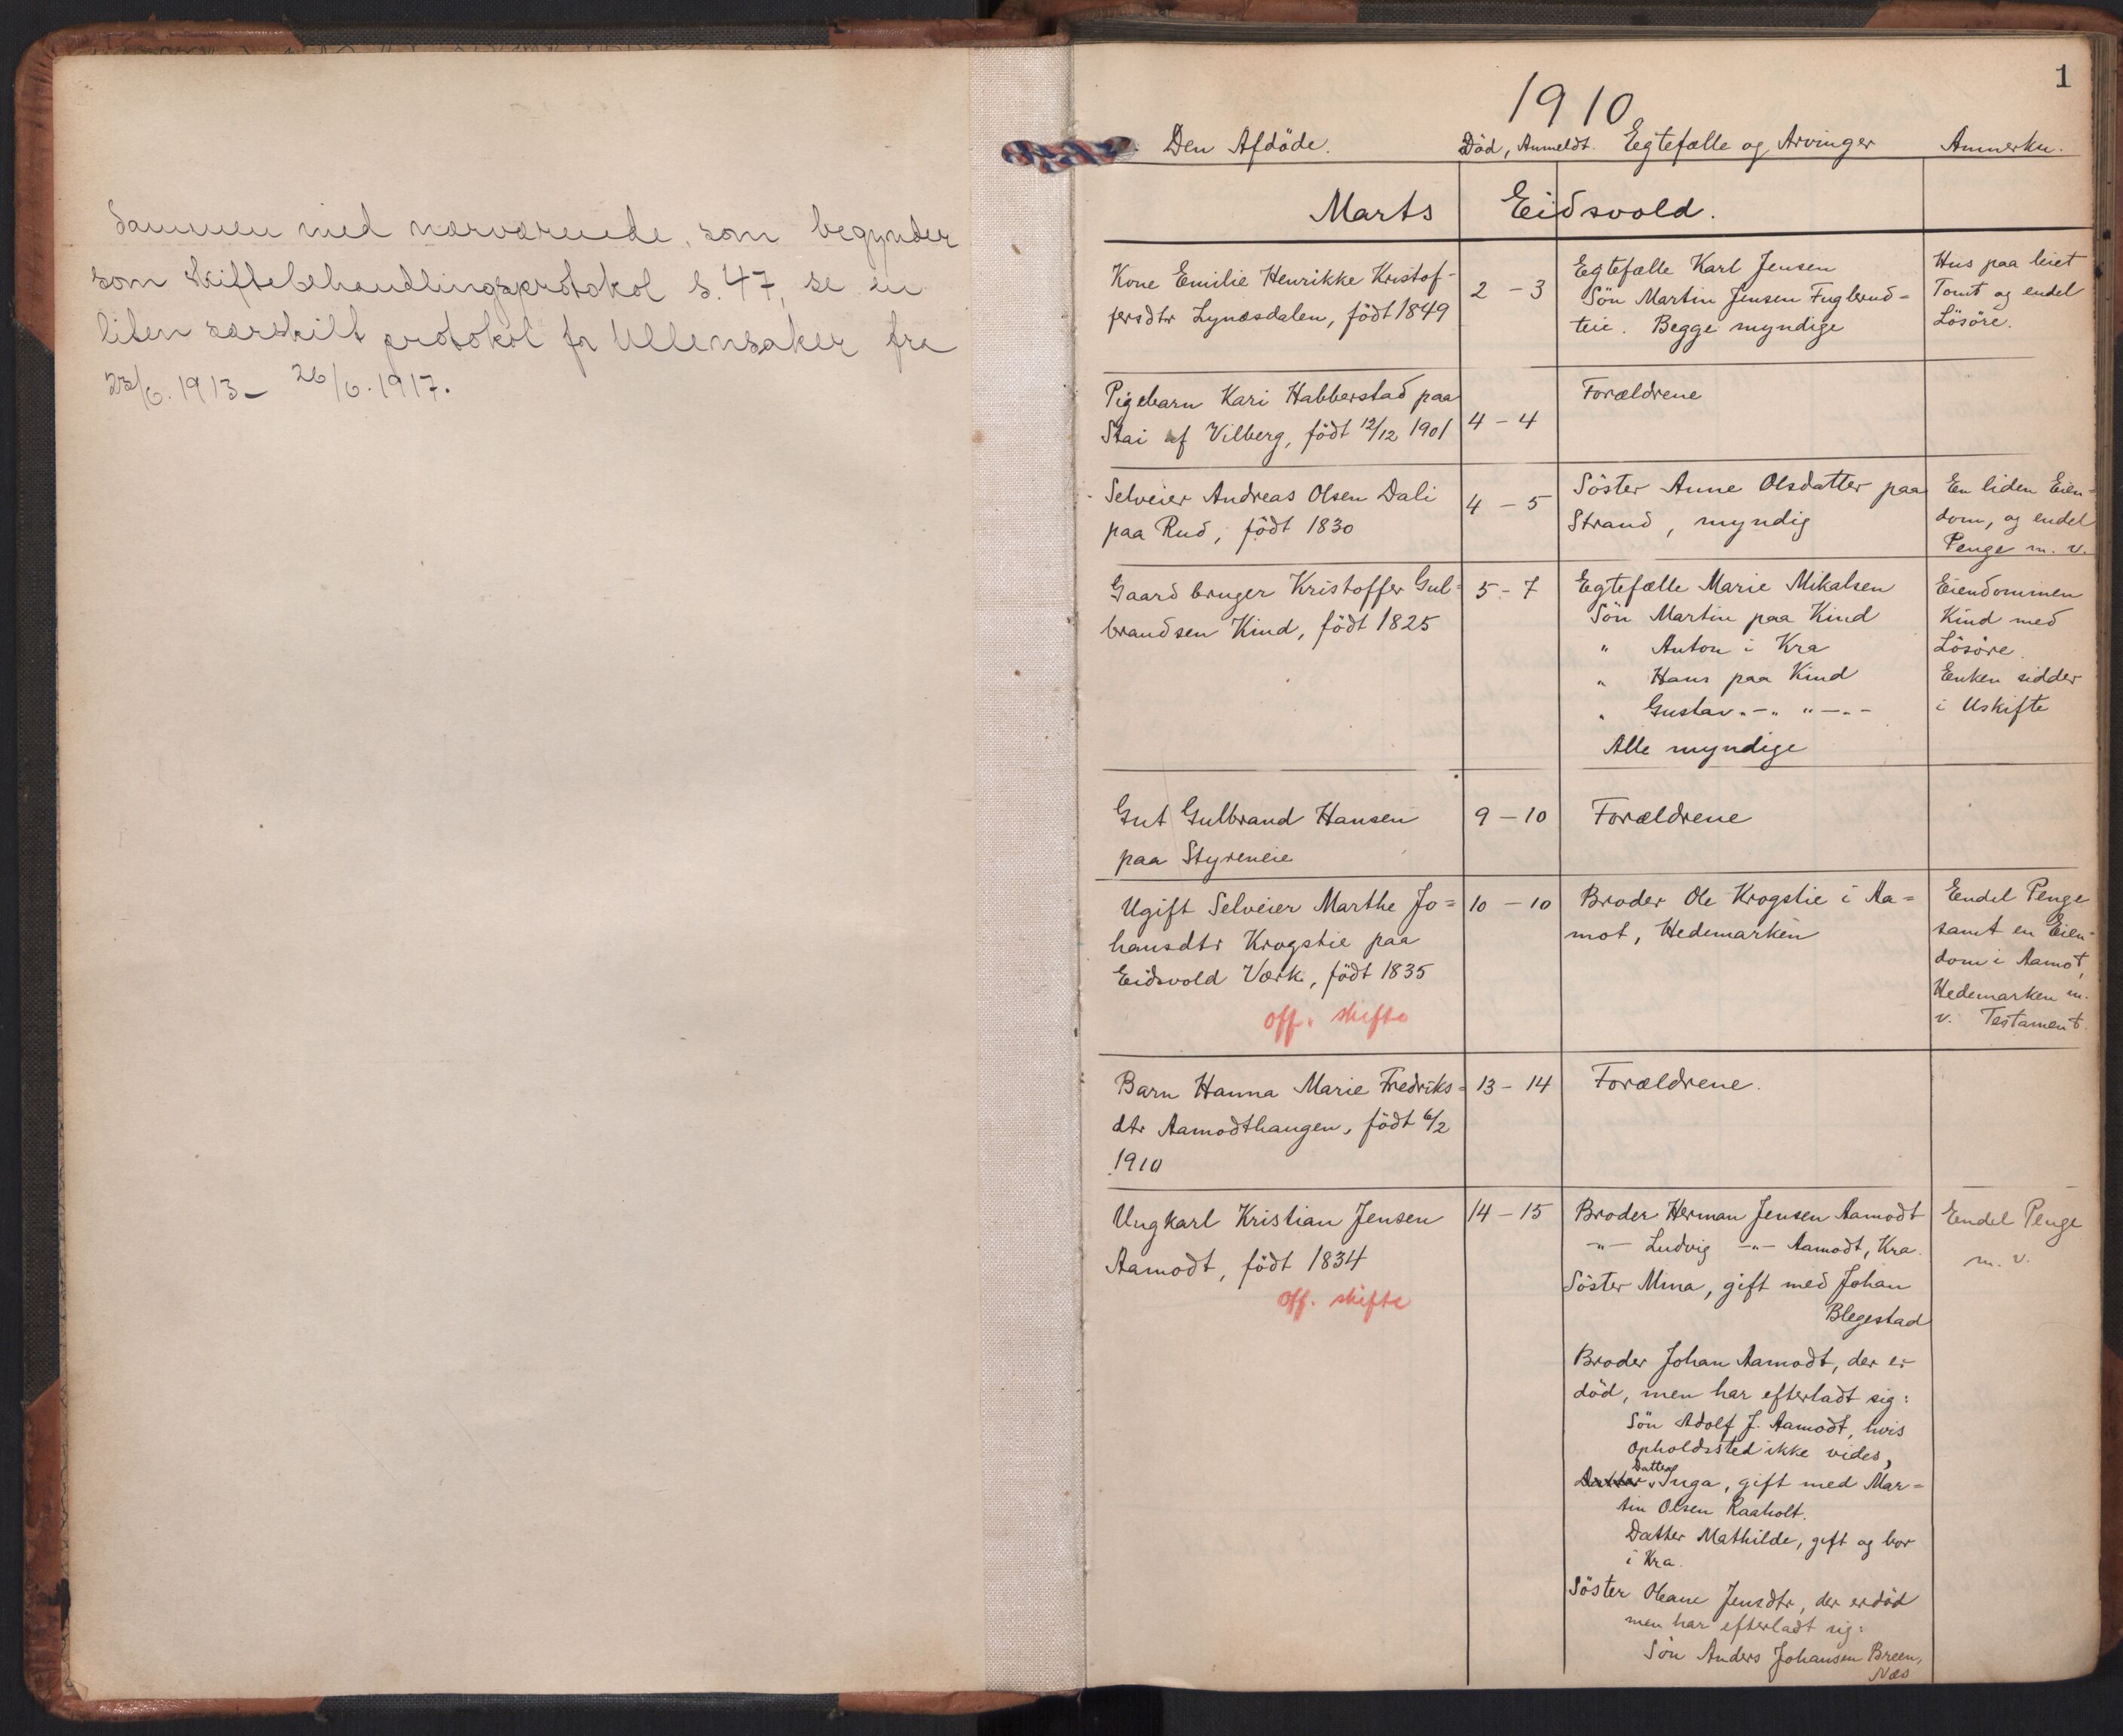 Sammen med nærværende, som begynder
som skiftebehandlingsprotokol s. 47, se en
liten særskilt protokol for Ullensaker fra
23/6. 1913 – 26/6. 1917.
1
1910
Den Afdöde. Död, Anmeldt. Egtefælle og Arvinger Anmerkn.
Marts Eidsvold.
Kone Emilie Henrikke Kristof-
fersdtr Lynæsdalen, födt 1849
2 – 3
Egtefælle Karl Jensen
Sön Martin Jensen Fuglerud=
teie. Begge myndige
Hus paa leiet
Tomt og endel
Lösöre.
Pigebarn Kari Habberstad paa
Stai af Vilberg, födt 12/12 1901
4 – 4
Forældrene
Selveier Andreas Olsen Dali
paa Rud, födt 1830
4 – 5
Söster Anne Olsdatter paa
Strand, myndig
En liden Eien=
dom, og endel
Penge m. v.
Gaardbruger Kristoffer Gul=
brandsen Kind, födt 1825
5 - 7
Egtefælle Marie Mikalsen
Sön Martin paa Kind
" Anton i Kra
" Hans paa Kind
" Gustav "–" "–"–
Alle myndige
Eiendommen
Kind med
Lösöre.
Enken sidder
i Uskifte
Gut Gulbrand Hansen
paa Styreneie
9 – 10
Forældrene
Ugift Selveier Marthe Jo=
hansdtr Krogstie paa
Eidsvold Værk, födt 1835
off. skifte
10 – 10
Broder Ole Krogstie i Aa=
mot, Hedemarken
Endel Penge
samt en Eien=
dom i Aamot,
Hedemarken m.
v. Testament.
Barn Hanna Marie Fredriks=
dtr Aamodthaugen, födt 6/2
1910
13 – 14
Forældrene.
Ungkarl Kristian Jensen
Aamodt, födt 1834
off. skifte
14 – 15
Broder Herman Jensen Aamodt
–"– Ludvig –"– Aamodt, Kra.
Söster Mina, gift med Johan
Blegestad
Broder Johan Aamodt, der er
död, men har efterladt sig:
Sön Adolf J. Aamodt, hvis
Opholdssted ikke vides,
Datter
Datter Inga, gift med Mar=
tin Olsen Raaholt.
Datter Mathilde, gift og bor
i Kra.
Söster Oleane Jensdtr, der er död
men har efterladt sig:
Sön Anders Johansen Breen,
Næs
Endel Penge
m. v.